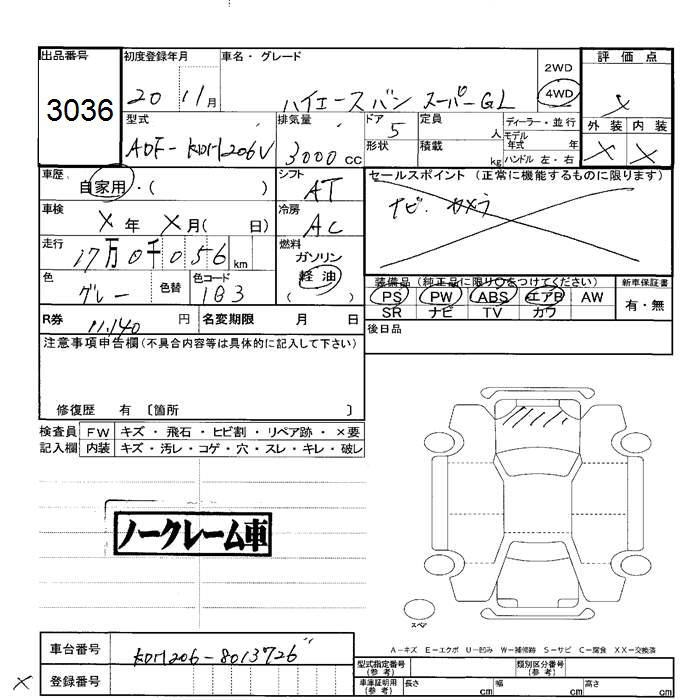 出品番号 初度登録年月 車名・グレード 評価点
3036 20 11月 ハイエースバン スーパーGL 2WD 4WD
型式 排気量 ドア 定員 ディーラー・並行 外装 内装
ADF-KDH206V 3000cc 5 人 モデル年式 年 × ×
形状 積載 kg ハンドル 左・右
車歴 自家用・( ) シフト AT セールスポイント (正常に機能するものに限ります)
車検 × 年 × 月( 日) 冷房 AC ナビ. カメラ
走行 17万0千056km 燃料 ガソリン 軽油 ( )
色 グレー 色替 色コード 1B3
装備品 (純正品に限り○をつけてください) 新車保証書
PS PW ABS エアB AW 有・無
SR ナビ TV カワ
R券 11,140 円 名変期限 月 日 後日品
注意事項申告欄(不具合内容等は具体的に記入して下さい)
修復歴 有 〔箇所 〕
検査員 FW キズ・飛石・ヒビ割・リペア跡・×要
記入欄 内装 キズ・汚レ・コゲ・穴・スレ・キレ・破レ
ノークレーム車
スペア
A-キズ E-エクボ U-凹み W-補修跡 S-サビ C-腐食 XX-交換済
車台番号 KDH206-8013726
× 登録番号
型式指定番号(参考) 類別区分番号(参考)
車庫証明用(参考) 長さ cm 幅 cm 高さ cm